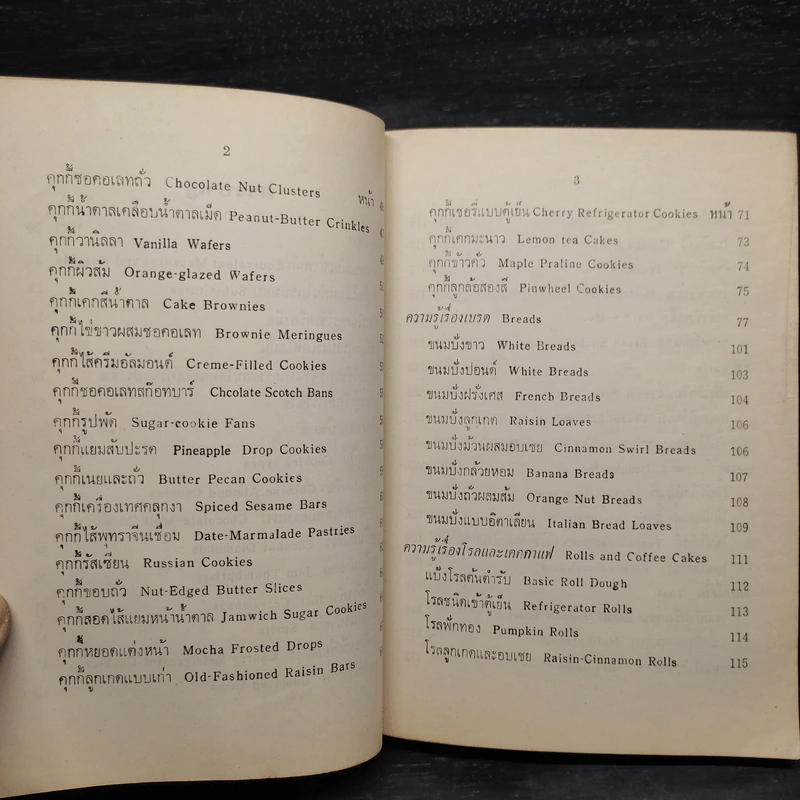 2
หน้า
คุกกี้ชอคอเลทถั่ว Chocolate Nut Clusters
คุกกี้น้ำตาลเคลือบน้ำตาลเม็ด Peanut-Butter Crinkles
คุกกี้วานิลลา Vanilla Wafers
คุกกี้ผิวส้ม Orange-glazed Wafers
คุกกี้เคกสีน้ำตาล Cake Brownies
คุกกี้ไข่ขาวผสมชอคอเลท Brownie Meringues
คุกกี้ไส้ครีมอัลมอนด์ Creme-Filled Cookies
คุกกี้ชอคอเลทสก๊อทบาร์ Chcolate Scotch Bans
คุกกี้รูปพัด Sugar-cookie Fans
คุกกี้แยมสับปะรด Pineapple Drop Cookies
คุกกี้เนยและถั่ว Butter Pecan Cookies
คุกกี้เครื่องเทศคลุกงา Spiced Sesame Bars
คุกกี้ไส้พุทราจีนเชื่อม Date-Marmalade Pastries
คุกกี้รัสเซียน Russian Cookies
คุกกี้ขอบถั่ว Nut-Edged Butter Slices
คุกกี้สอดไส้แยมหน้าน้ำตาล Jamwich Sugar Cookies
คุกกี้หยอดแต่งหน้า Mocha Frosted Drops
คุกกี้ลูกเกดแบบเก่า Old-Fashioned Raisin Bars
3
คุกกี้เชอรี่แบบตู้เย็น Cherry Refrigerator Cookies หน้า 71
คุกกี้เคกมะนาว Lemon tea Cakes 73
คุกกี้ข้าวคั่ว Maple Praline Cookies 74
คุกกี้ลูกล้อสองสี Pinwheel Cookies 75
ความรู้เรื่องเบรด Breads 77
ขนมปังขาว White Breads 101
ขนมปังปอนด์ White Breads 103
ขนมปังฝรั่งเศส French Breads 104
ขนมปังลูกเกด Raisin Loaves 106
ขนมปังม้วนผสมอบเชย Cinnamon Swirl Breads 106
ขนมปังกล้วยหอม Banana Breads 107
ขนมปังถั่วผสมส้ม Orange Nut Breads 108
ขนมปังแบบอิตาเลียน Italian Bread Loaves 109
ความรู้เรื่องโรลและเคกกาแฟ Rolls and Coffee Cakes 111
แป้งโรลต้นตำรับ Basic Roll Dough 112
โรลชนิดเข้าตู้เย็น Refrigerator Rolls 113
โรลฟักทอง Pumpkin Rolls 114
โรลลูกเกดและอบเชย Raisin-Cinnamon Rolls 115